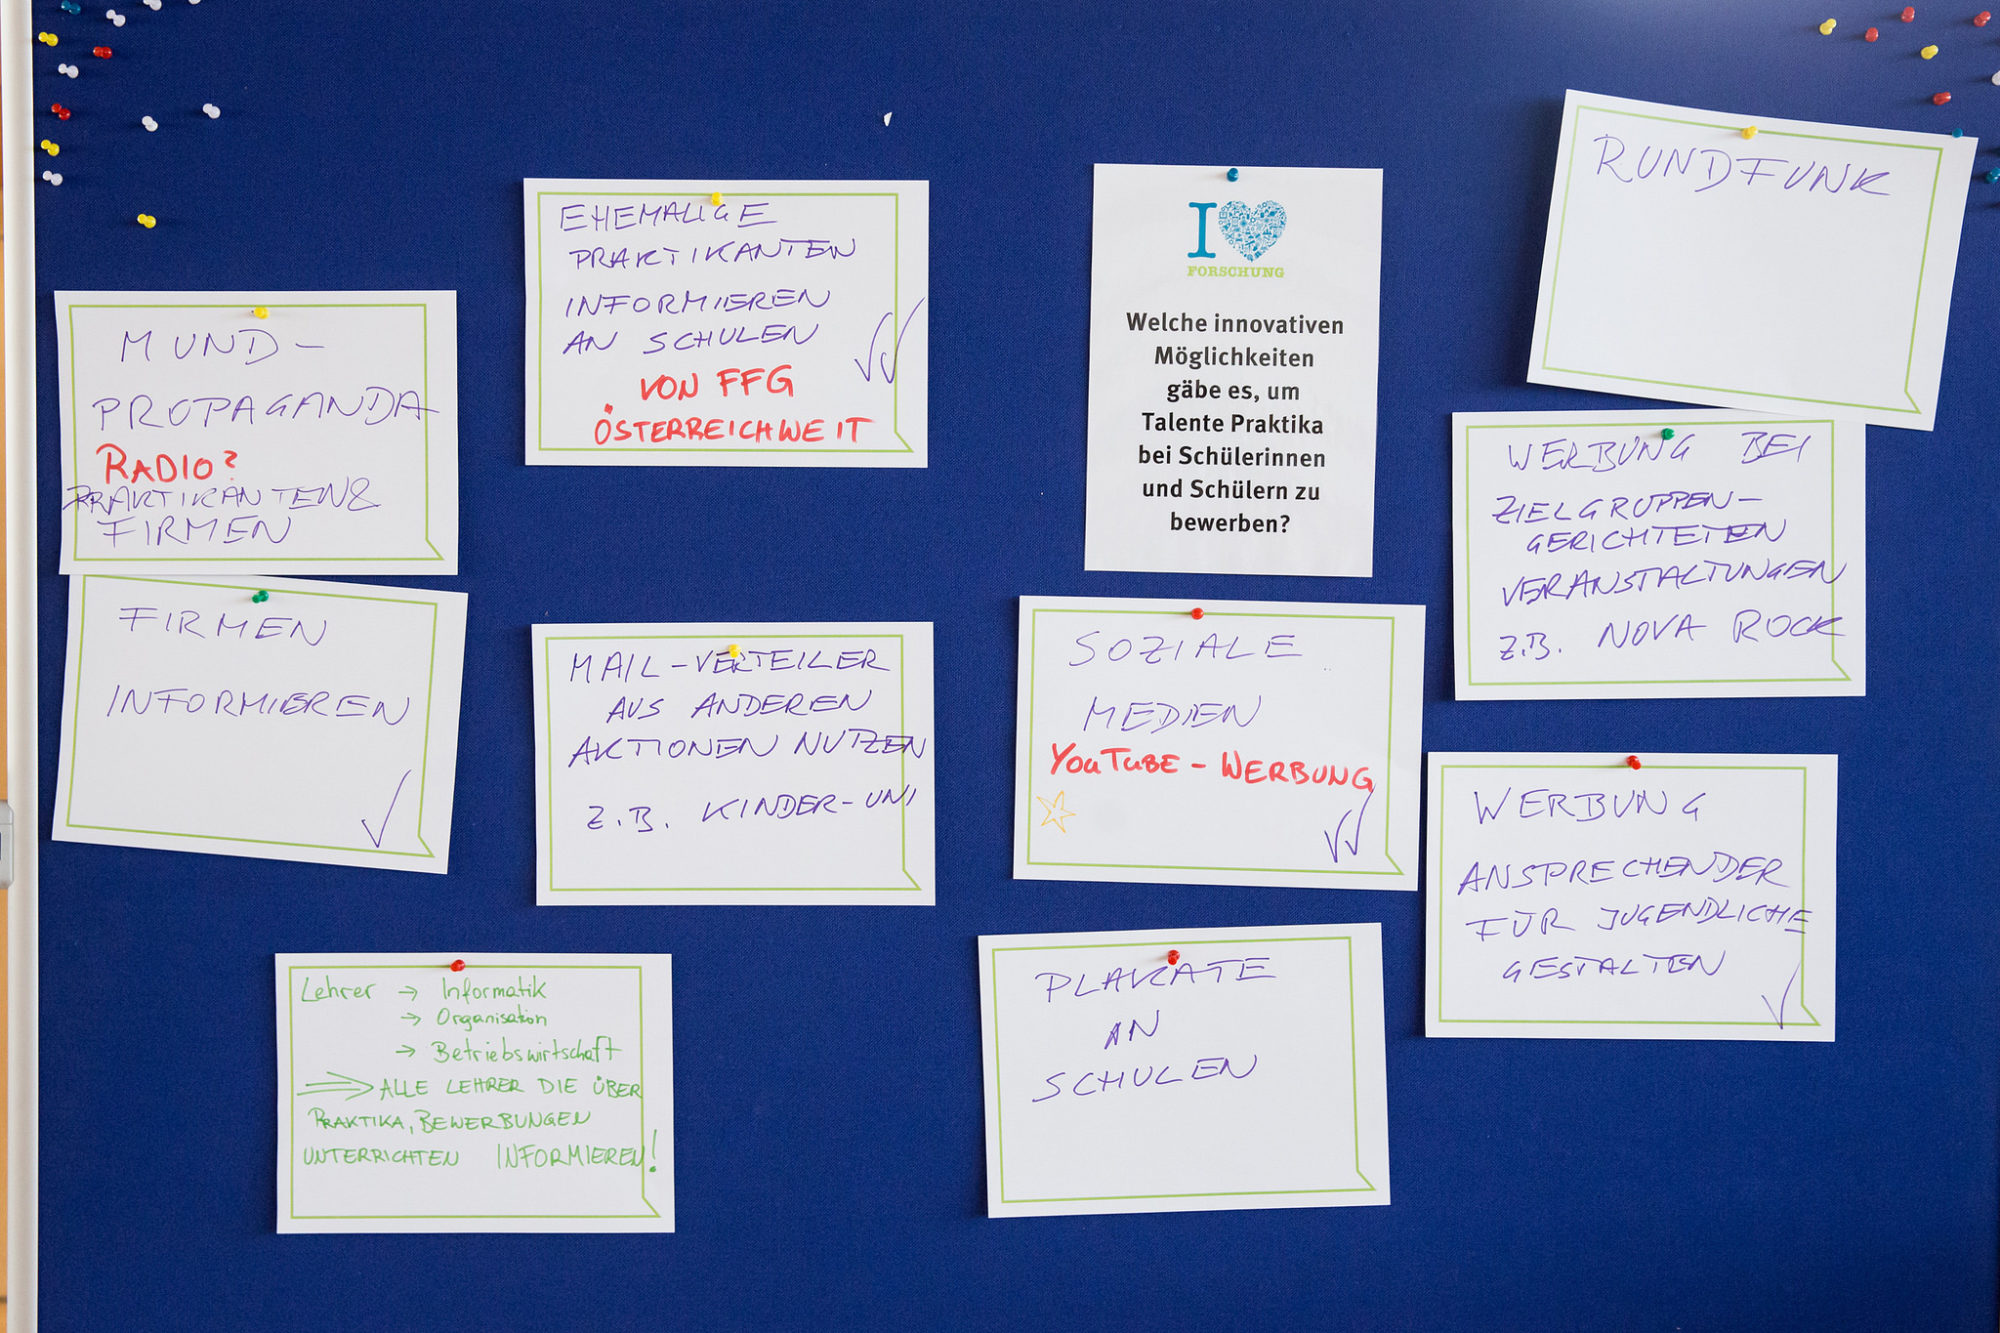 MUND-
PROPAGANDA
RADIO?
PRAKTIKANTEN &
FIRMEN
FIRMEN
INFORMIEREN
EHEMALIGE
PRAKTIKANTEN
INFORMIEREN
AN SCHULEN
VON FFG
ÖSTERREICHWEIT
MAIL-VERTEILER
AUS ANDEREN
AKTIONEN NUTZEN
Z.B. KINDER-UNI
Lehrer → Informatik
→ Organisation
→ Betriebswirtschaft
⇒ ALLE LEHRER DIE ÜBER
PRAKTIKA, BEWERBUNGEN
UNTERRICHTEN INFORMIEREN!
I
FORSCHUNG
Welche innovativen
Möglichkeiten
gäbe es, um
Talente Praktika
bei Schülerinnen
und Schülern zu
bewerben?
SOZIALE
MEDIEN
YOUTUBE - WERBUNG
PLAKATE
AN
SCHULEN
RUNDFUNK
WERBUNG BEI
ZIELGRUPPEN-
GERICHTETEN
VERANSTALTUNGEN
Z.B. NOVA ROCK
WERBUNG
ANSPRECHENDER
FÜR JUGENDLICHE
GESTALTEN